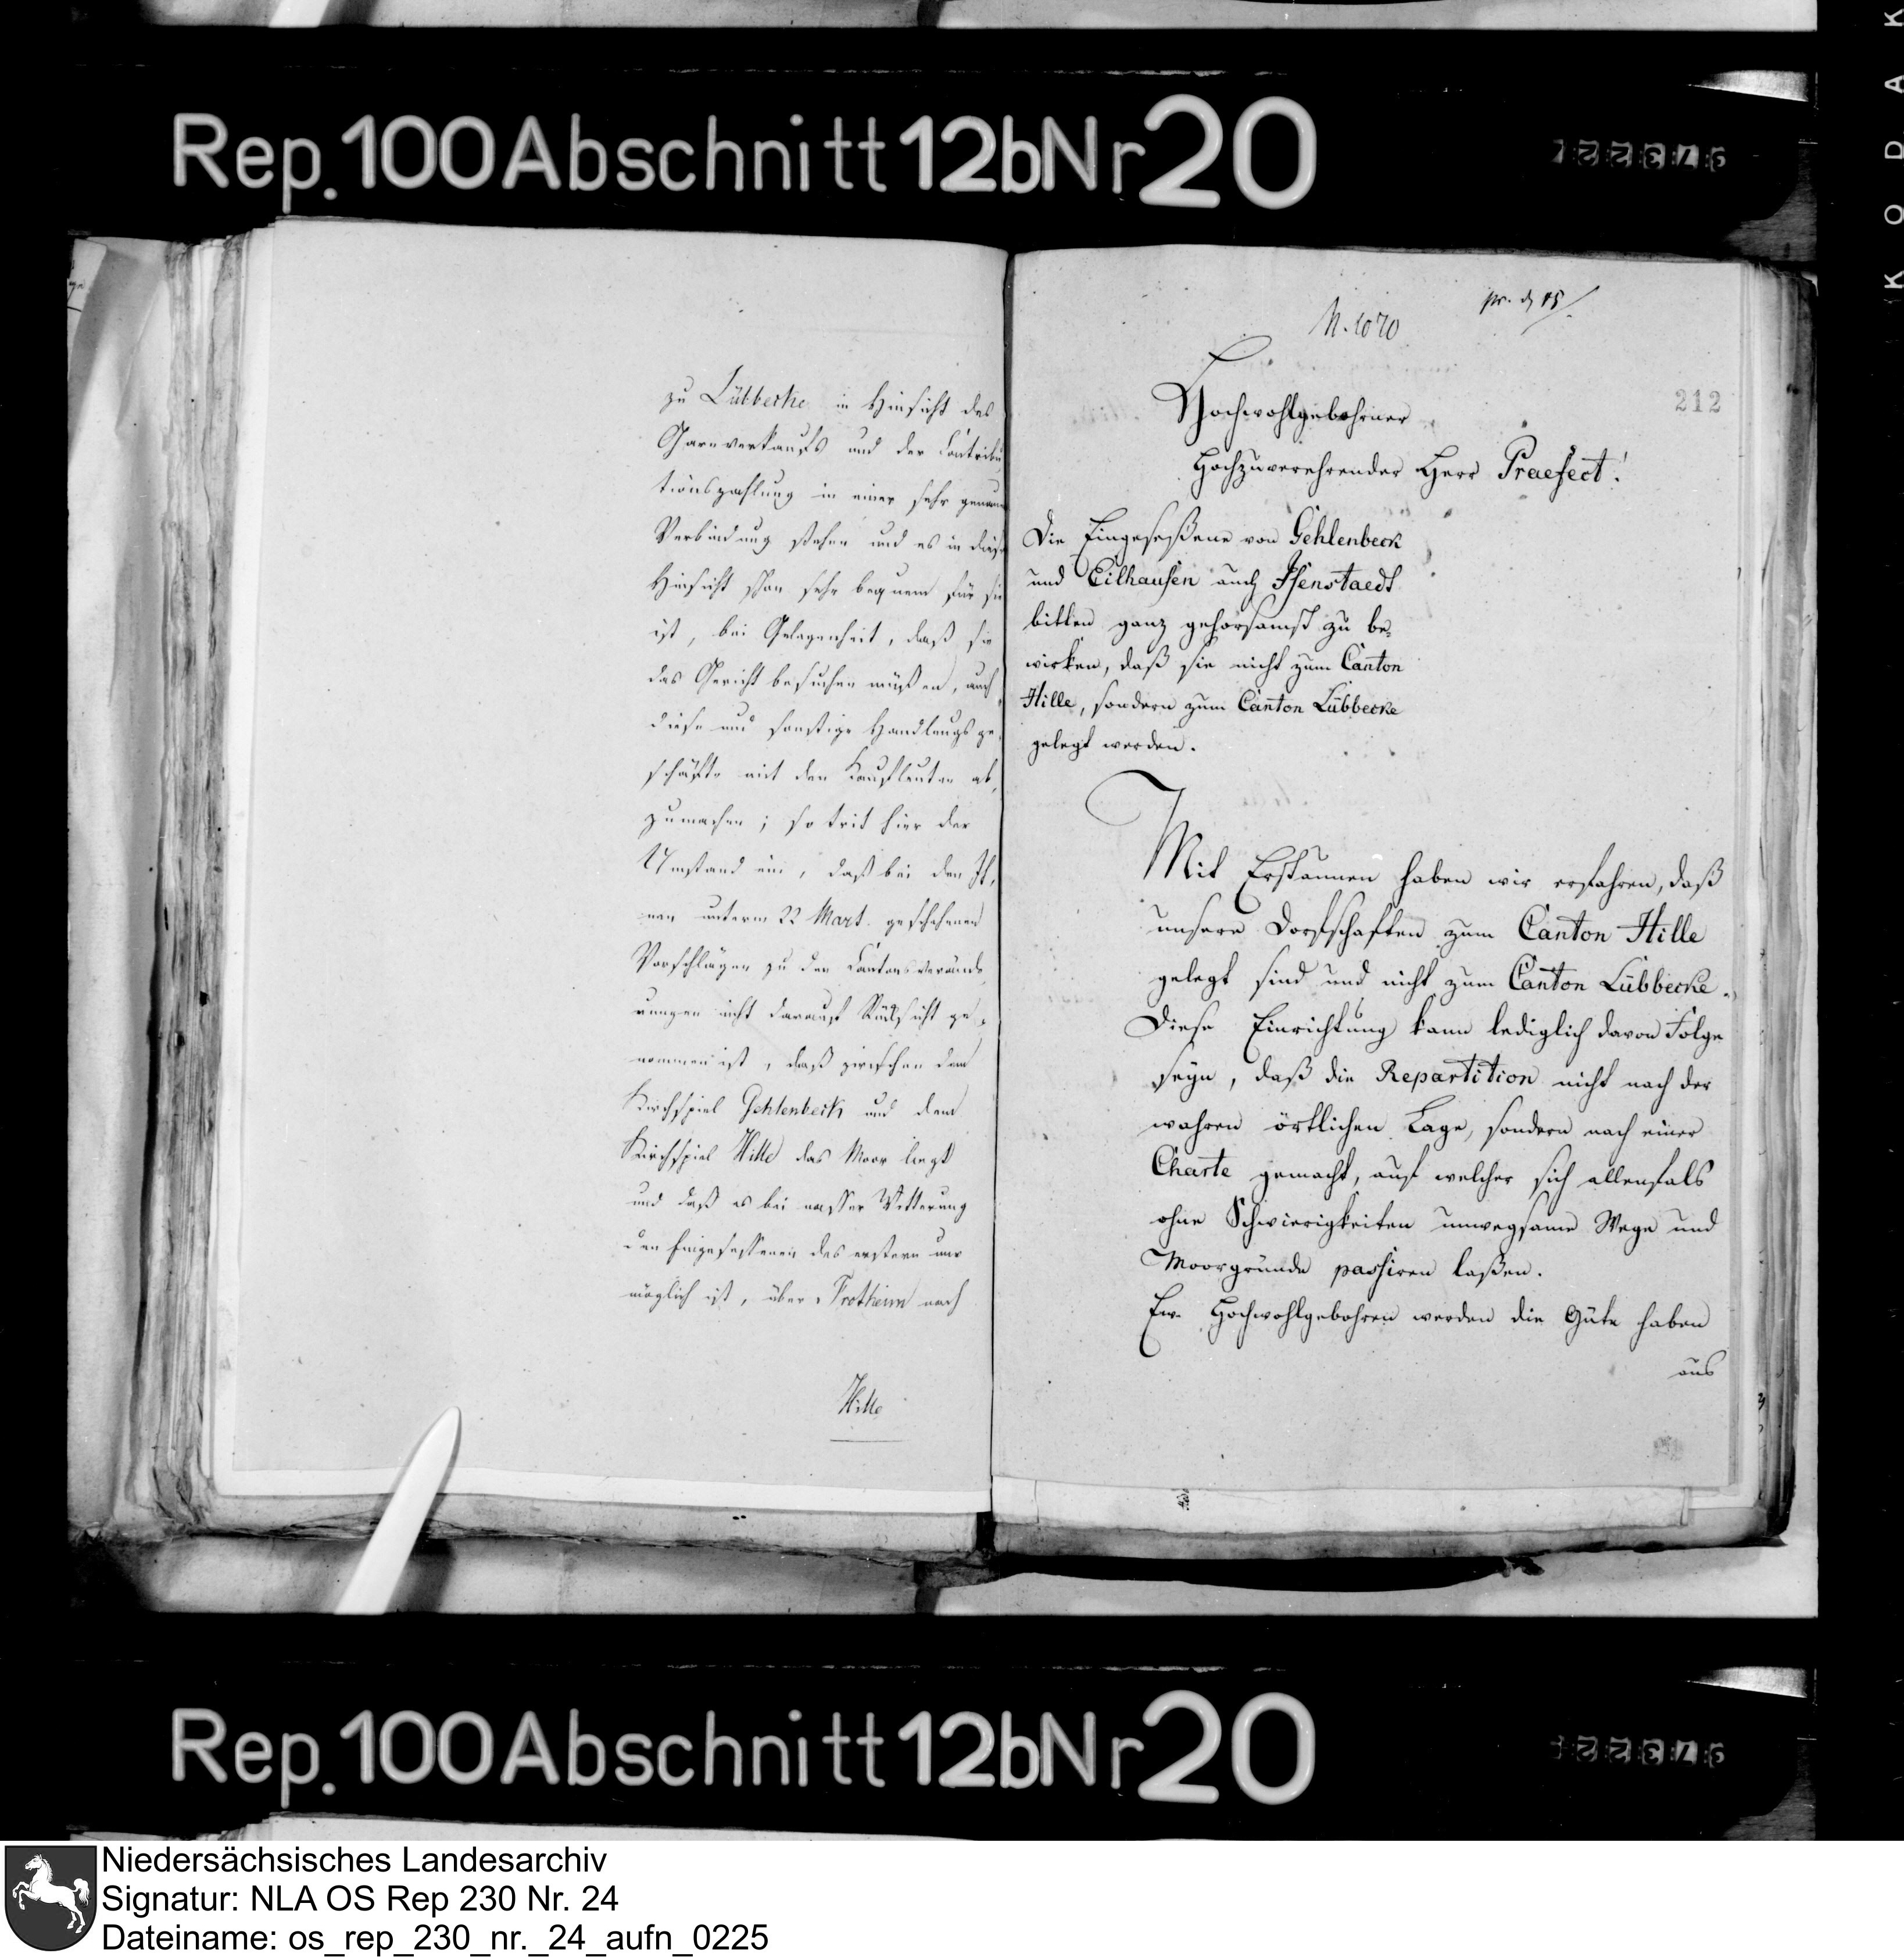 Rep. 100 Abschnitt 12b Nr 20
zu Lübbecke in Hinsicht des
Garnverkaufs und der Contribu
tionszahlung in einer sehr genauen
Verbindung stehen und es in dieser
Hinsicht schon sehr bequem für sie
ist, bei Gelegenheit, daß sie
das Gericht besuchen müßen, auch
diese und sonstige Handlungsge,
schäfte mit den Kaufleuten ab,
zumachen; so trit hier der
Umstand ein, daß bei den Ih,
nen unterm 22 Mart. geschehenen
Vorschlägen zu den Cantons verände
rungen nicht darauf Rücksicht ge,
nommen ist, daß zwischen dem
Kirchspiel Gehlenbeck und dem
Kirchspiel Hille das Moor liegt
und daß es bei nasser Witterung
den Eingesessenen des erstern un
möglich ist, über Frotheim nach
Hille
pr. d 15/
N. 1070
212
Hochwohlgebohrner
Hochzuverehrender Herr Praefect!
Die Eingeseßene von Gehlenbeck
und Eilhausen auch Isenstaedt
bitten ganz gehorsamst zu be,
wirken, daß sie nicht zum Canton
Hille, sondern zum Canton Lübbecke
gelegt werden.
Mit Erstaunen haben wir erfahren, daß
unsere Dorfschaften zum Canton Hille
gelegt sind und nicht zum Canton Lübbecke.
Diese Einrichtung kann lediglich davon Folge
seyn, daß die Repartition nicht nach der
wahren örtlichen Lage, sondern nach einer
Charte gemacht, auf welcher sich allenfals
ohne Schwierigkeiten unwegsame Wege und
Moorgründe passiren laßen.
Ew. Hochwohlgebohren werden die Güte haben
aus
Rep. 100 Abschnitt 12b Nr 20
KODAK
Niedersächsisches Landesarchiv
Signatur: NLA OS Rep 230 Nr. 24
Dateiname: os_rep_230_nr._24_aufn_0225